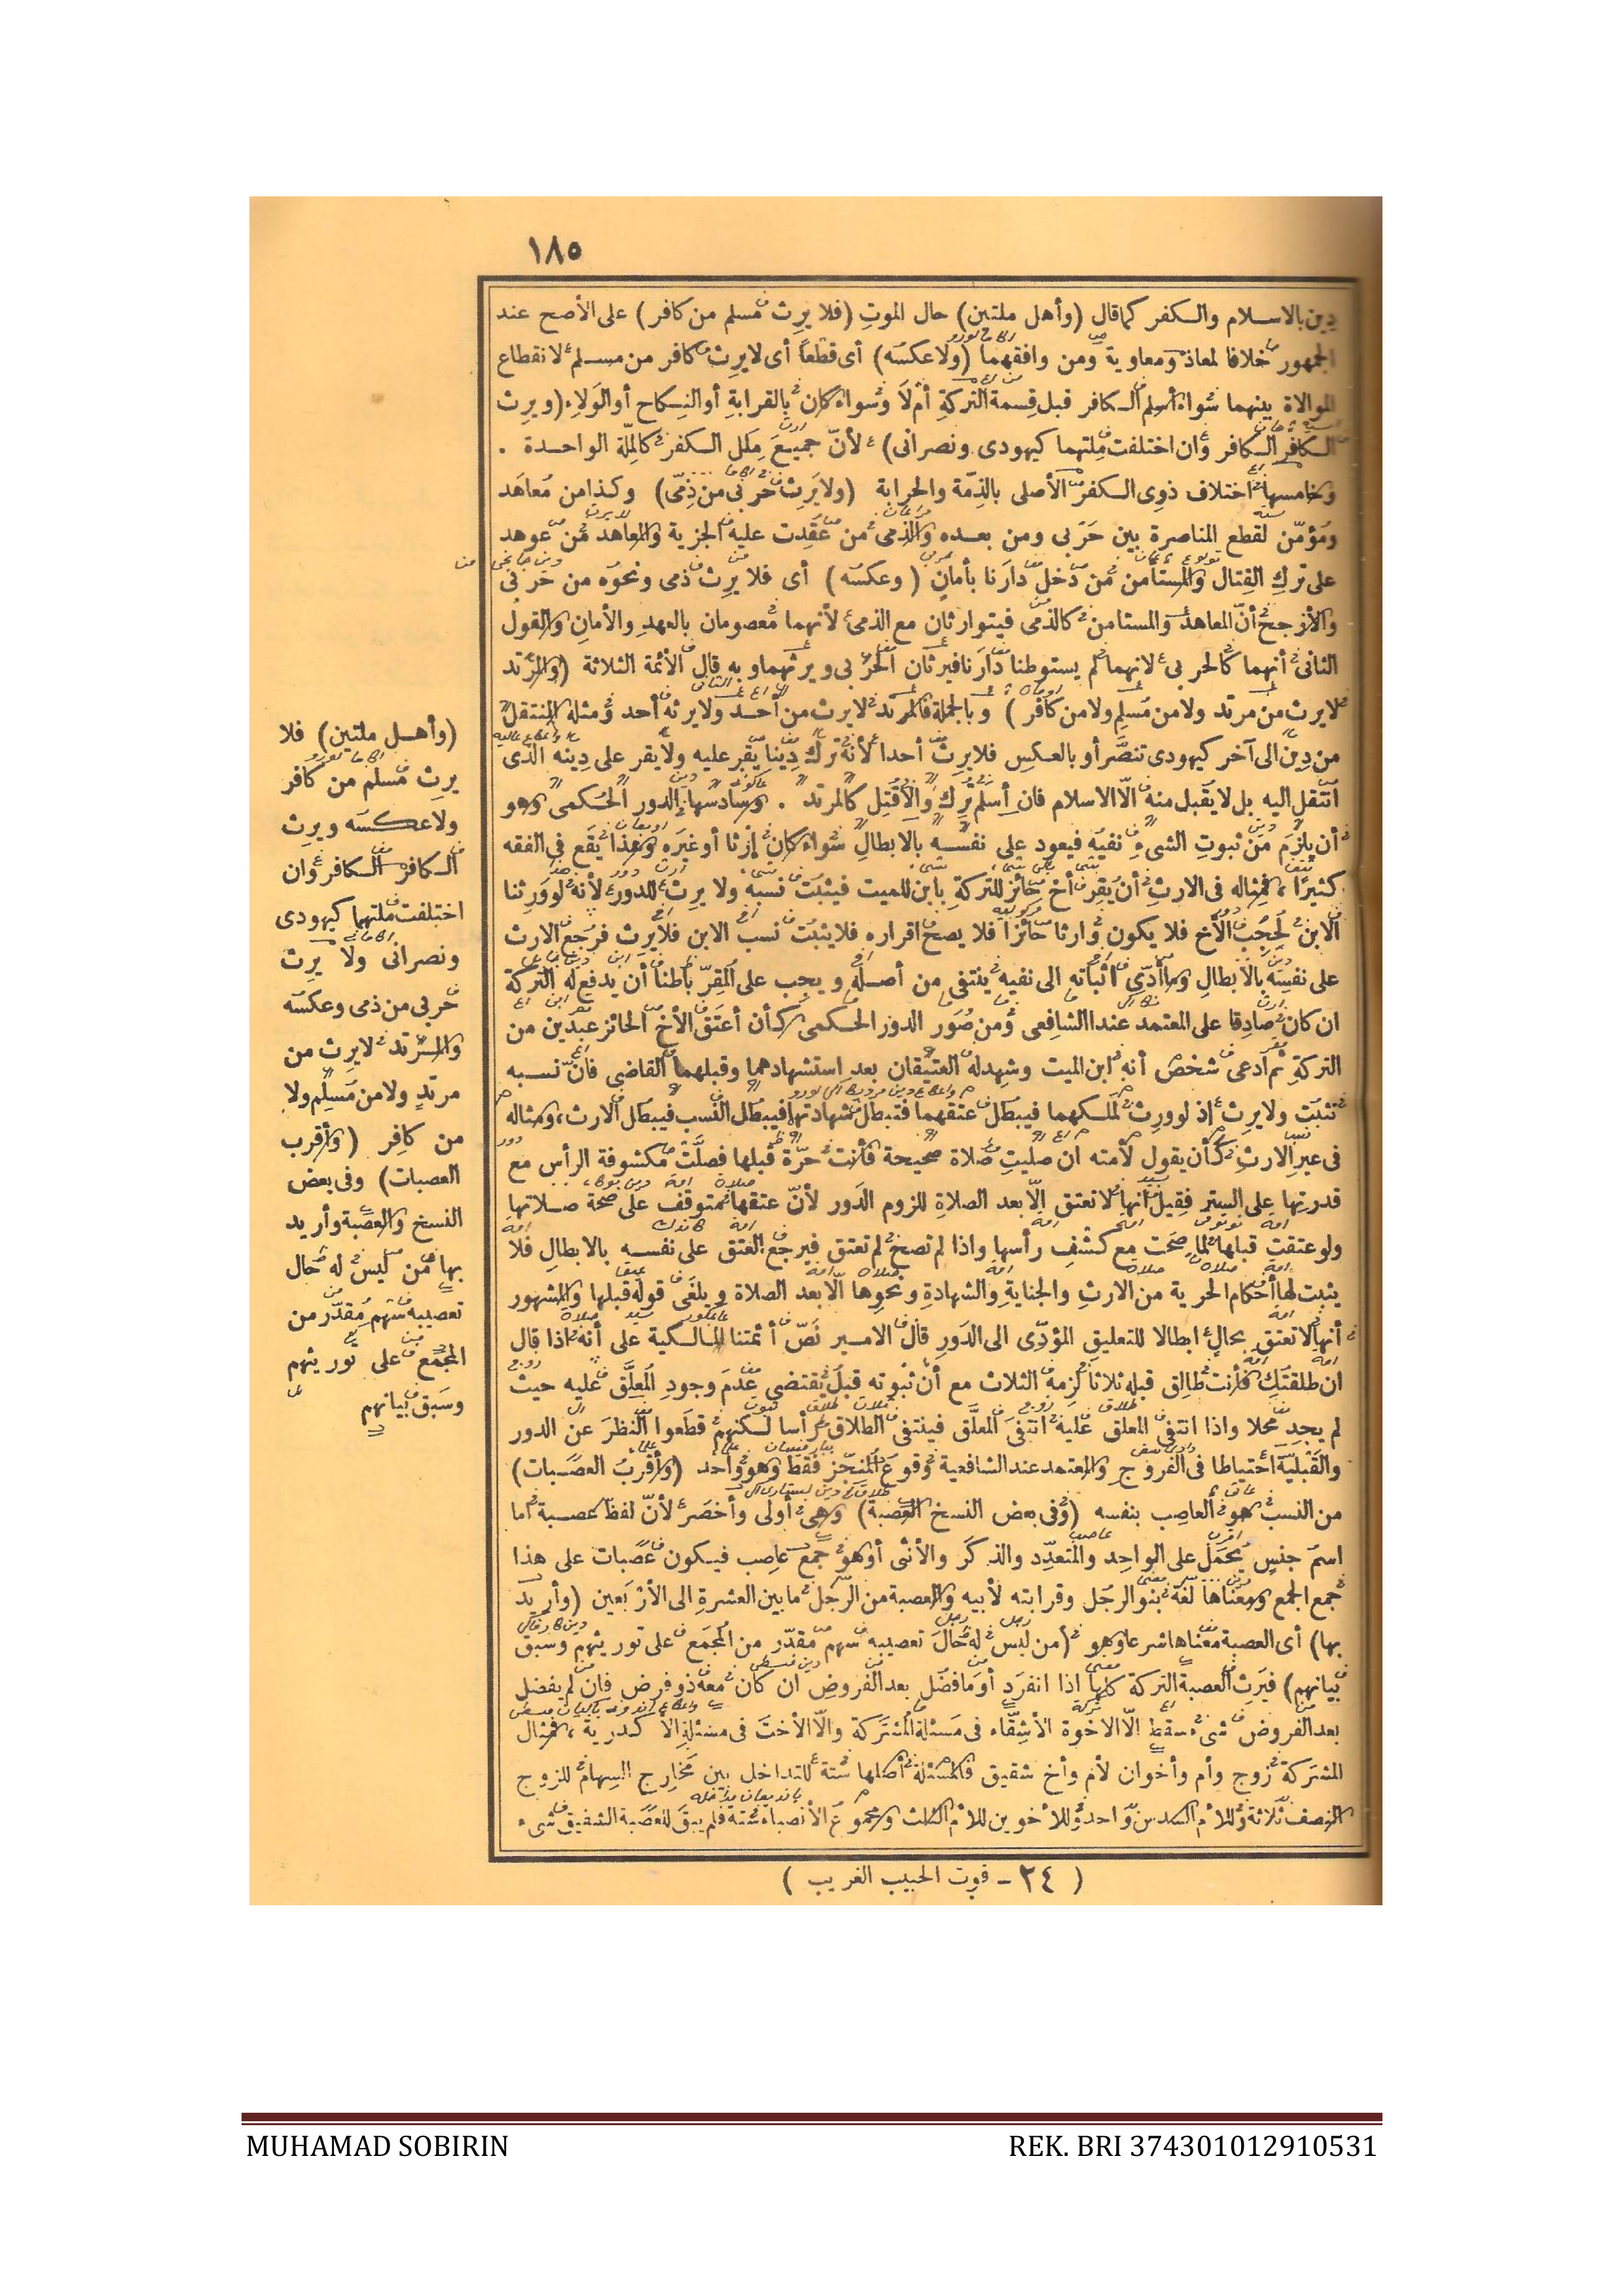 ١٨٥
دين بالاسلام والكفر كما قال (وأهل ملتين) حال الموت (فلا يرث مسلم من كافر) على الأصح عند
الجمهور خلافا لمعاذ ومعاوية ومن وافقهما (ولا عكسه) أى قطعا أى لا يرث كافر من مسلم لانقطاع
الموالاة بينهما سواء أسلم الكافر قبل قسمة التركة أم لا وسواء كان بالقرابة أو النكاح أو الولاء (ويرث
الكافر الكافر وان اختلفت ملتهما كيهودى ونصرانى) لأن جميع ملل الكفر كالملة الواحدة .
وخامسها اختلاف ذوى الكفر الأصلى بالذمة والحرابة (ولا يرث حربى من ذمى) وكذا من معاهد
ومؤمن لقطع المناصرة بين حربى ومن بعده والذمى من عقدت عليه الجزية والمعاهد من عوهد
على ترك القتال والمستأمن من دخل دارنا بأمان (وعكسه) أى فلا يرث ذمى ونحوه من حربى
والأرجح أن المعاهد والمستامن كالذمى فيتوارثان مع الذمى لأنهما معصومان بالعهد والأمان والقول
الثانى أنهما كالحربى لانهما لم يستوطنا دارنا فيرثان الحربى ويرثهما وبه قال الأئمة الثلاثة (والمرتد
لا يرث من مرتد ولا من مسلم ولا من كافر) وبالجملة فالمرتد لا يرث من أحد ولا يرثه أحد ومثله المنتقل
من دين الى آخر كيهودى تنصر أو بالعكس فلا يرث أحدا لأنه ترك دينا يقر عليه ولا يقر على دينه الذى
انتقل اليه بل لا يقبل منه الا الاسلام فان أسلم ترك والا قتل كالمرتد . وسادسها الدور الحكمى وهو
أن يلزم من ثبوت الشىء نفيه فيعود على نفسه بالابطال سواء كان إرثا أو غيره وهذا يقع فى الفقه
كثيرا ، فمثاله فى الارث أن يقر أخ حائز للتركة بابن للميت فيثبت نسبه ولا يرث للدور لأنه لو ورثنا
الابن لحجب الأخ فلا يكون وارثا حائزا فلا يصح اقراره فلا يثبت نسب الابن فلا يرث فرجع الارث
على نفسه بالابطال وما أدى اثباته الى نفيه ينتفى من أصله ويجب على المقر باطنا أن يدفع له التركة
ان كان صادقا على المعتمد عند الشافعى ومن صور الدور الحكمى كأن أعتق الأخ الحائز عبدين من
التركة ثم ادعى شخص أنه ابن الميت وشهد له العتيقان بعد استشهادهما وقبلهما القاضى فان نسبه
تثبت ولا يرث إذ لو ورث لملكهما فيبطل عتقهما فتبطل شهادتها فيبطل النسب فيبطل الارث ، ومثاله
فى غير الارث كأن يقول لأمته ان صليت صلاة صحيحة فأنت حرة قبلها فصلت مكشوفة الرأس مع
قدرتها على الستر فقيل أنها لا تعتق إلا بعد الصلاة للزوم الدور لأن عتقها متوقف على صحة صلاتها
ولو عتقت قبلها لما صحت مع كشف رأسها واذا لم تصح لم تعتق فيرجع العتق على نفسه بالابطال فلا
يثبت لها أحكام الحرية من الارث والجناية والشهادة ونحوها الا بعد الصلاة ويلغى قوله قبلها والمشهور
أنها لا تعتق بحال ابطالا للتعليق المؤدى الى الدور قال الامير نص أئمتنا المالكية على أنه اذا قال
ان طلقتك فأنت طالق قبله ثلاثا لزمه الثلاث مع أن ثبوته قبل يقتضى عدم وجود المعلق عليه حيث
لم يجد محلا واذا انتفى المعلق عليه انتفى المعلق فينتفى الطلاق رأسا لكنهم قطعوا النظر عن الدور
والقبلية احتياطا فى الفروج والمعتمد عند الشافعية وقوع المنجز فقط وهو واحد (وأقرب العصبات)
من النسب هو العاصب بنفسه (وفى بعض النسخ العصبة) وهى أولى وأخصر لأن لفظ عصبة اما
اسم جنس يحمل على الواحد والمتعدد والذكر والأنثى أو هو جمع عاصب فيكون عصبات على هذا
جمع الجمع ومعناها لغة بنو الرجل وقرابته لأبيه والعصبة من الرجل ما بين العشرة الى الأربعين (وأريد
بها) أى العصبة معناها شرعا وهو (من ليس له حال تعصيبه سهم مقدر من المجمع على توريثهم وسبق
بيانهم) فيرث العصبة التركة كلها اذا انفرد أو ما فضل بعد الفروض ان كان معه ذو فرض فان لم يفضل
بعد الفروض شىء سقط الا الاخوة الأشقاء فى مسئلة المشتركة والا الأخت فى مسئلة الأكدرية ، فمثال
المشتركة زوج وأم وأخوان لأم وأخ شقيق فالمسئلة أصلها ستة للتداخل بين مخارج السهام للزوج
النصف ثلاثة وللأم السدس واحد وللأخوين للأم الثلث ومجموع الأنصباء ستة فلم يبق للعصبة الشقيق شىء
(٢٤ - قوت الحبيب الغريب)
(وأهل ملتين) فلا
يرث مسلم من كافر
ولا عكسه ويرث
الكافر الكافر وان
اختلفت ملتهما كيهودى
ونصرانى ولا يرث
حربى من ذمى وعكسه
والمرتد لا يرث من
مرتد ولا من مسلم ولا
من كافر (وأقرب
العصبات) وفى بعض
النسخ والعصبة وأريد
بها من ليس له حال
تعصيبه سهم مقدر من
المجمع على توريثهم
وسبق بيانهم
MUHAMAD SOBIRIN
REK. BRI 374301012910531